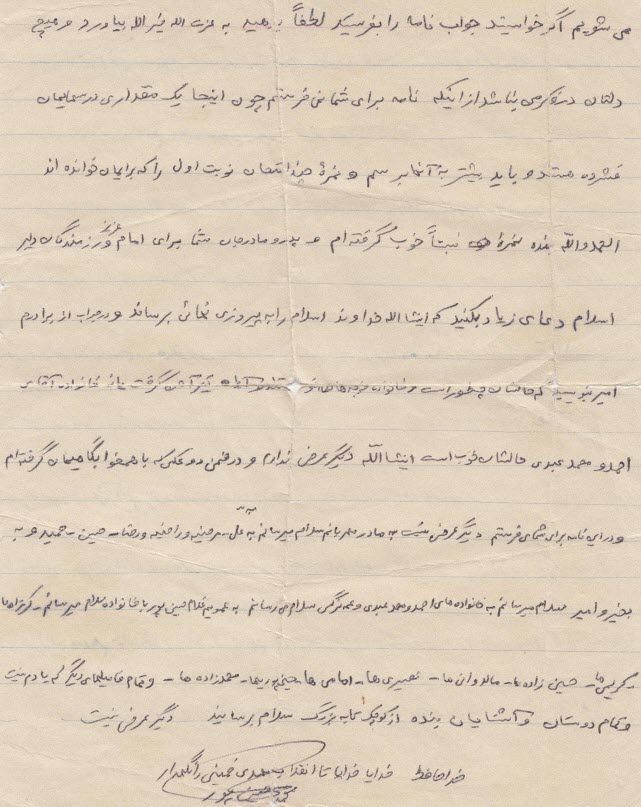 می شویم اگر خواستید جواب نامه را بفرستید لطفاً بدهید به عزت الله خیرالله بیاورد و هیچ
دلتان در فکر من نباشد از اینکه نامه برای شما نمی فرستم چون اینجا یک مقداری درسهایمان
فشرده هستند و باید بیشتر به آنها برسم و نمرۀ چند امتحان نوبت اول را که برایمان خوانده اند
الحمدوالله بنده نمرۀ نسبتاً خوب گرفته ام و پدر و مادر جان شما برای امام عزیز و رزمندگان دلیر
اسلام دعای زیاد بکنید که انشا الله خداوند اسلام را به پیروزی نهائی برساند و در جواب از برادرم
امیر بنویسید که حالشان چطور است و خانواده خانواده آقای
احمد و محمد عبدی حالشان خوب است انشاالله دیگر عرض ندارم و در ضمن دو عکس که با همخوابگاهیمان گرفته ام
و در این نامه برای شما می فرستم دیگر عرضی نیست به مادر سلام میرسانم به حسین - حمید و به
و امیر سلام میرسانم به خانواده های احمد و محمد عبدی و عمه نرگس سلام می رسانم به عمویم غلام حسین پور با خانواده سلام میرسانم
حسین زاده ها - ها - نصیری ها - امامی ها - حسین پور یها - محمدزاده ها - و تمام فامیلهای دیگر که یادم نیست
و تمام دوستان و آشنایان بنده از کوچک تا به بزرگ سلام برسانید دیگر عرضی نیست
خداحافظ خدایا خدایا تا انقلاب مهدی خمینی را نگهدار